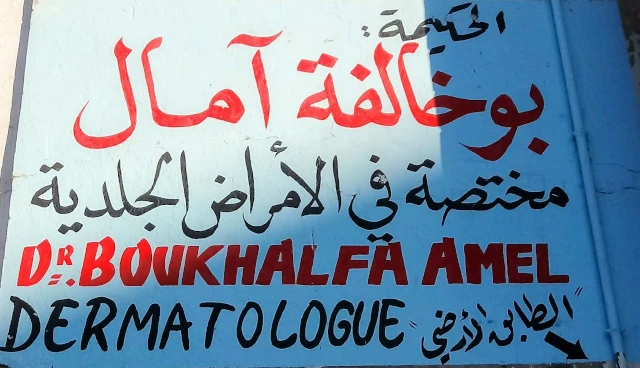 الحكيمة:
بوخالفة آمال
مختصة في الأمراض الجلدية
DR. BOUKHALFA AMEL
DERMATOLOGUE "الطابق الأرضي"